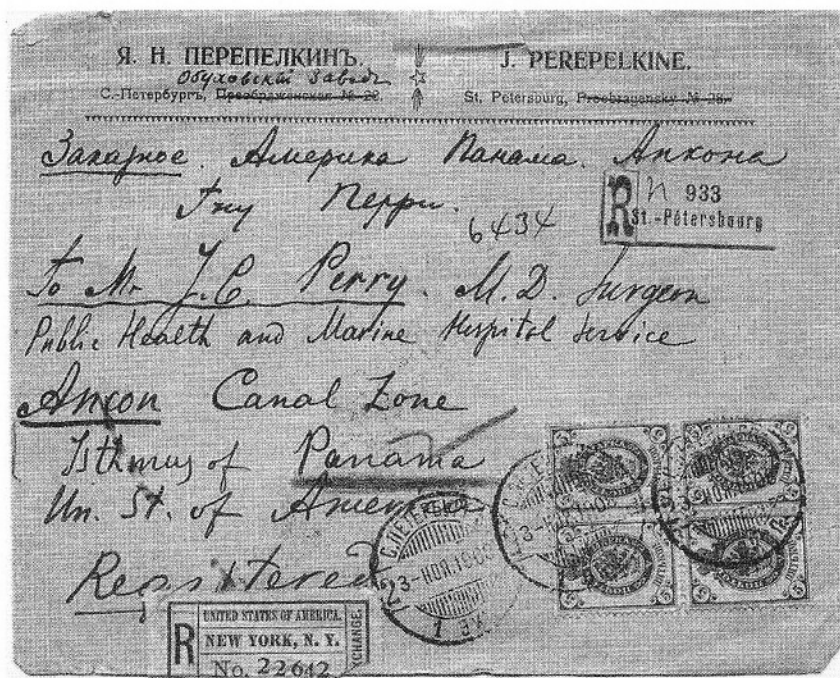 Я. Н. ПЕРЕПЕЛКИНЪ.
Обуховскій Заводъ
С.-Петербургъ, Преображенская № 28.
J. PEREPELKINE.
St. Petersburg, Preobragensky № 28.
Заказное. Америка Панама. Анкона
Гну Перри.
6434
R N 933
St.-Pétersbourg
To Mr J. C. Perry. M. D. Surgeon
Public Health and Marine Hospital Service
Ancon Canal Zone
Isthmus of Panama
Un. St. of America
Registered
С. ПЕТЕРБУ
23-НОЯ.1908
1 ЭКС
R
UNITED STATES OF AMERICA.
NEW YORK, N. Y.
No. 22642
XCHANGE.
5 5
5 5